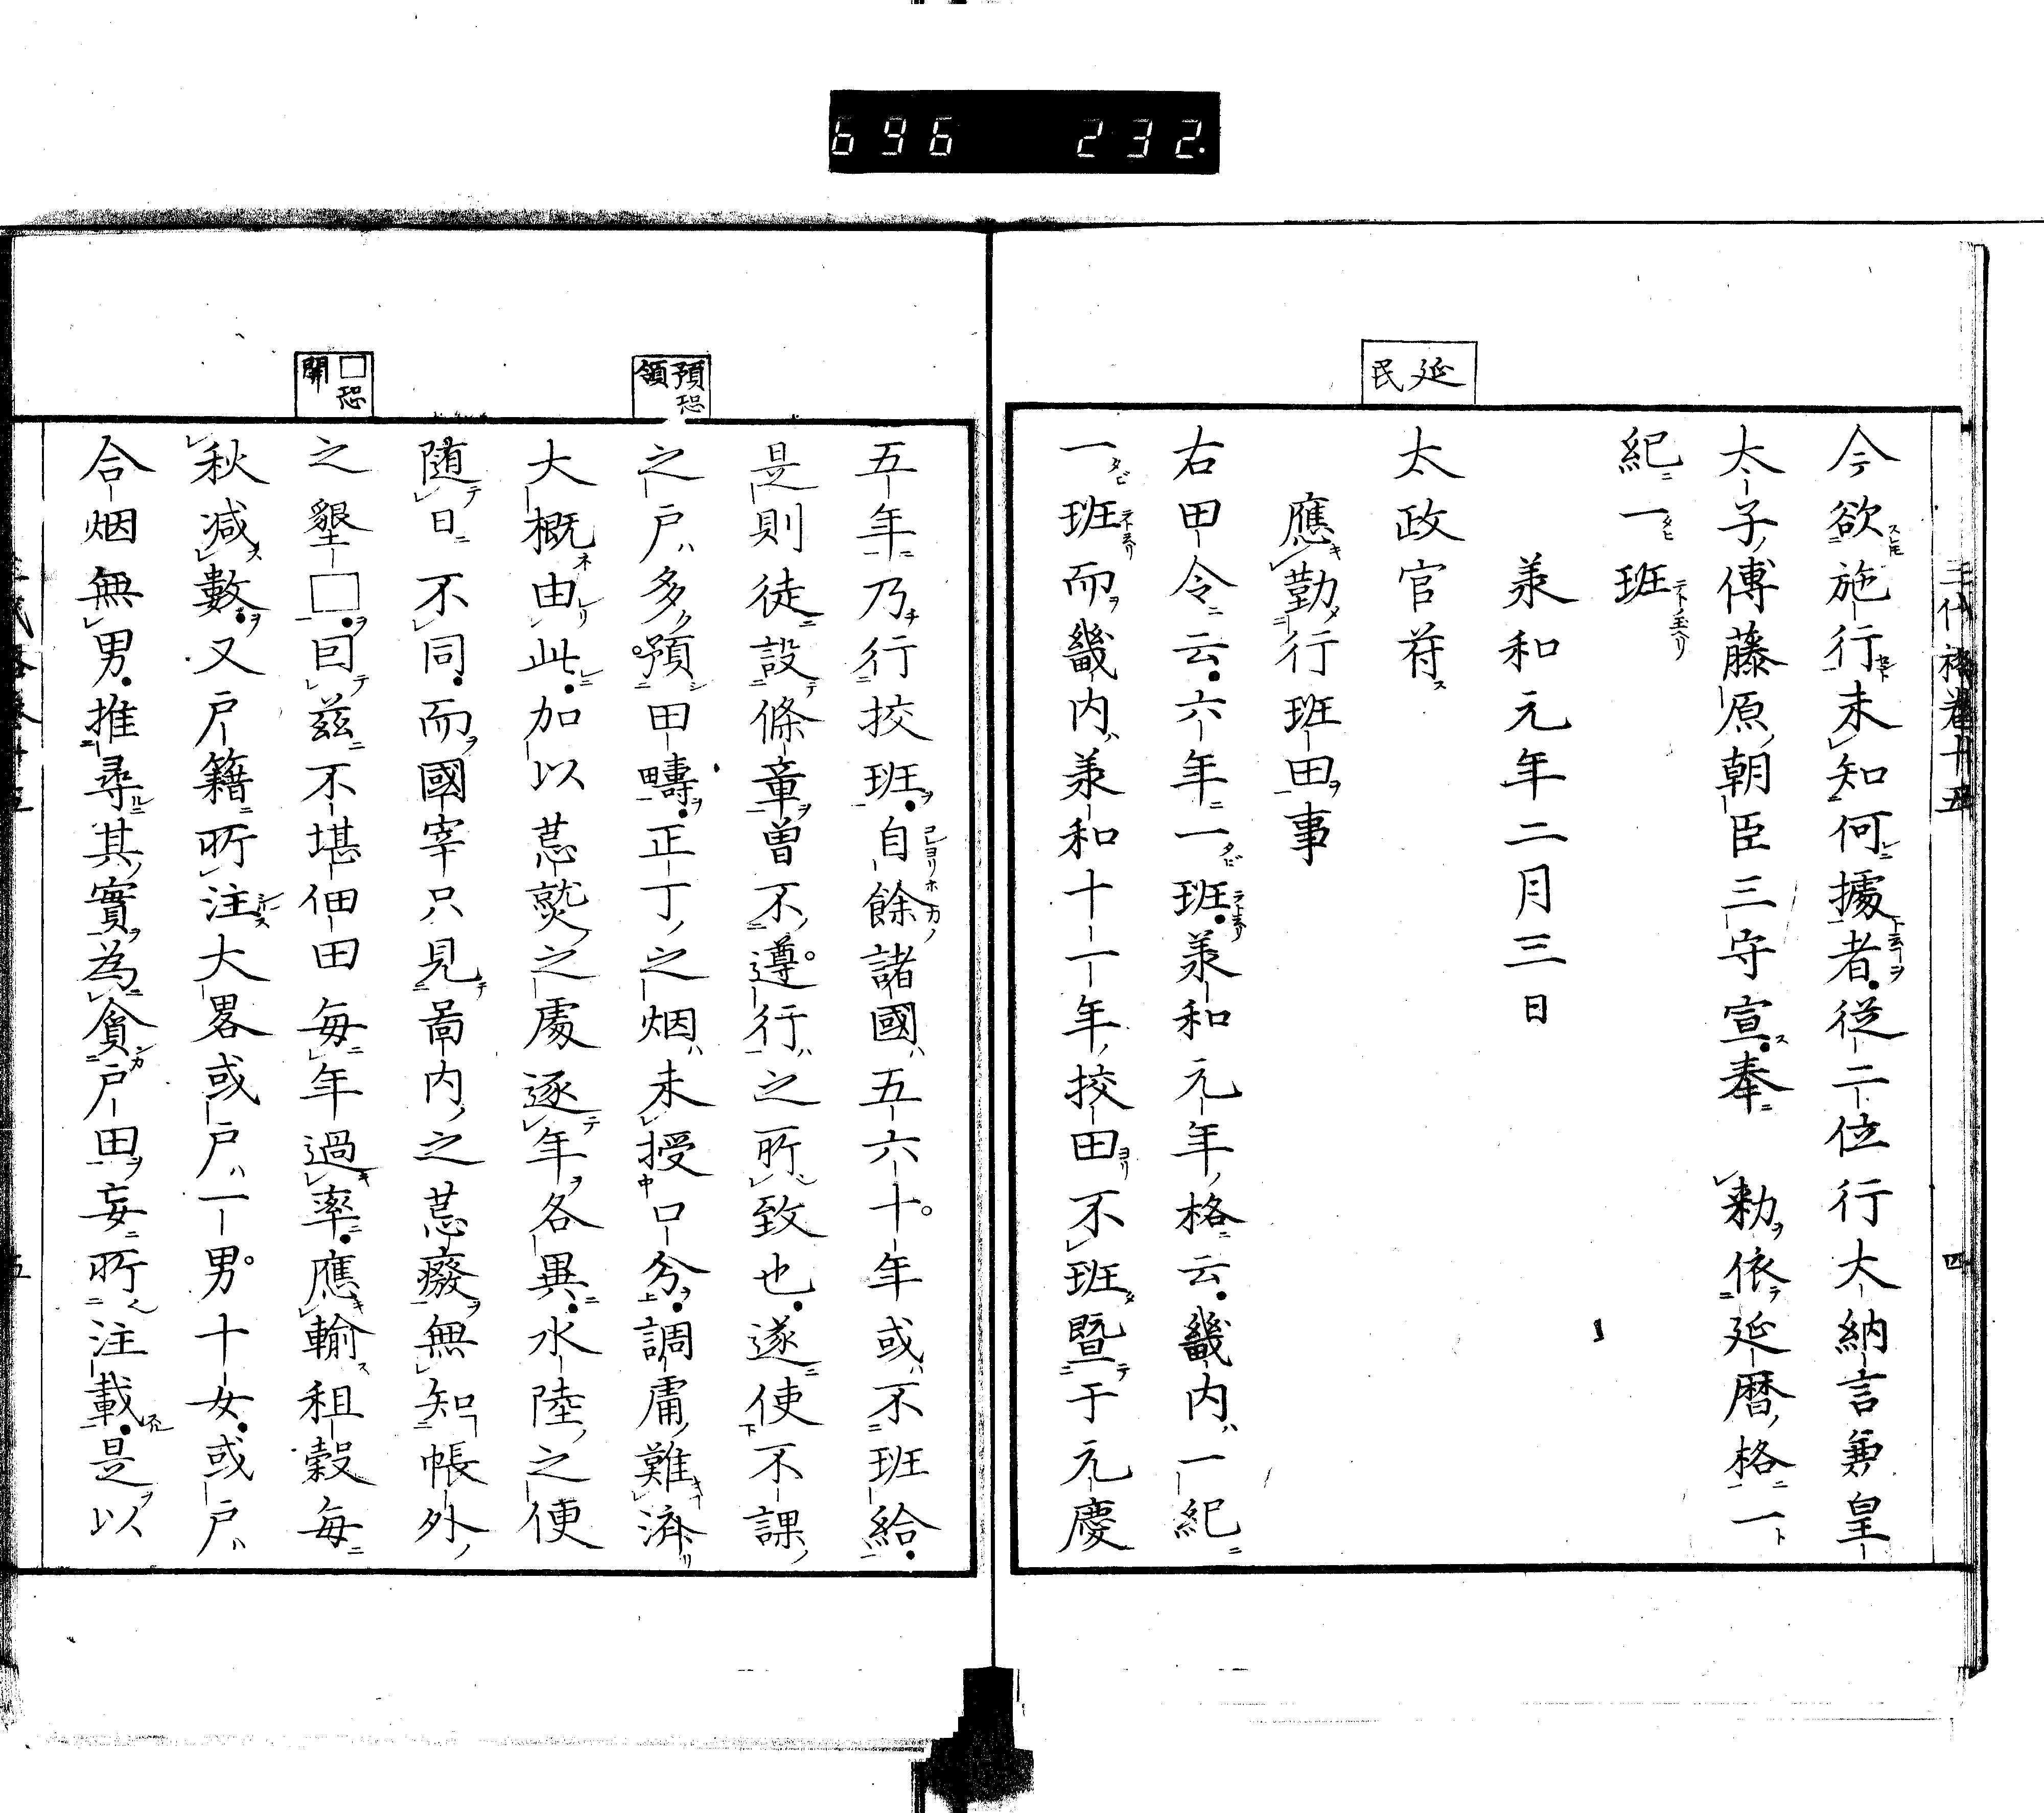 696 232.
三代格卷十五 四
今欲施行未知何據者從二位行大納言兼皇
太子傅藤原朝臣三守宣奉 勅依延暦格一
紀一班
承和元年二月三日
延民
太政官符
應勤行班田事
右甲令云六年一班承和元年格云畿内一紀
一班而畿内承和十一年挍田不班暨于元慶
五年乃行挍班自餘諸國五六十年或不班給
是則徒設條章曽不遵行之所致也遂使不課
預恐
領
之戸多預田疇正丁之烟未授口分調庸難濟
大概由此加以荒熟之處逐年各異水陸之便
随日不同而國宰只見啚内之荒癈無知帳外
□恐
開
之墾□囙茲不堪佃田毎年過率應輸租穀毎
秋減數又戸籍所注大畧或戸一男十女或戸
合烟無男推尋其實為貪戸田妄所注載是以